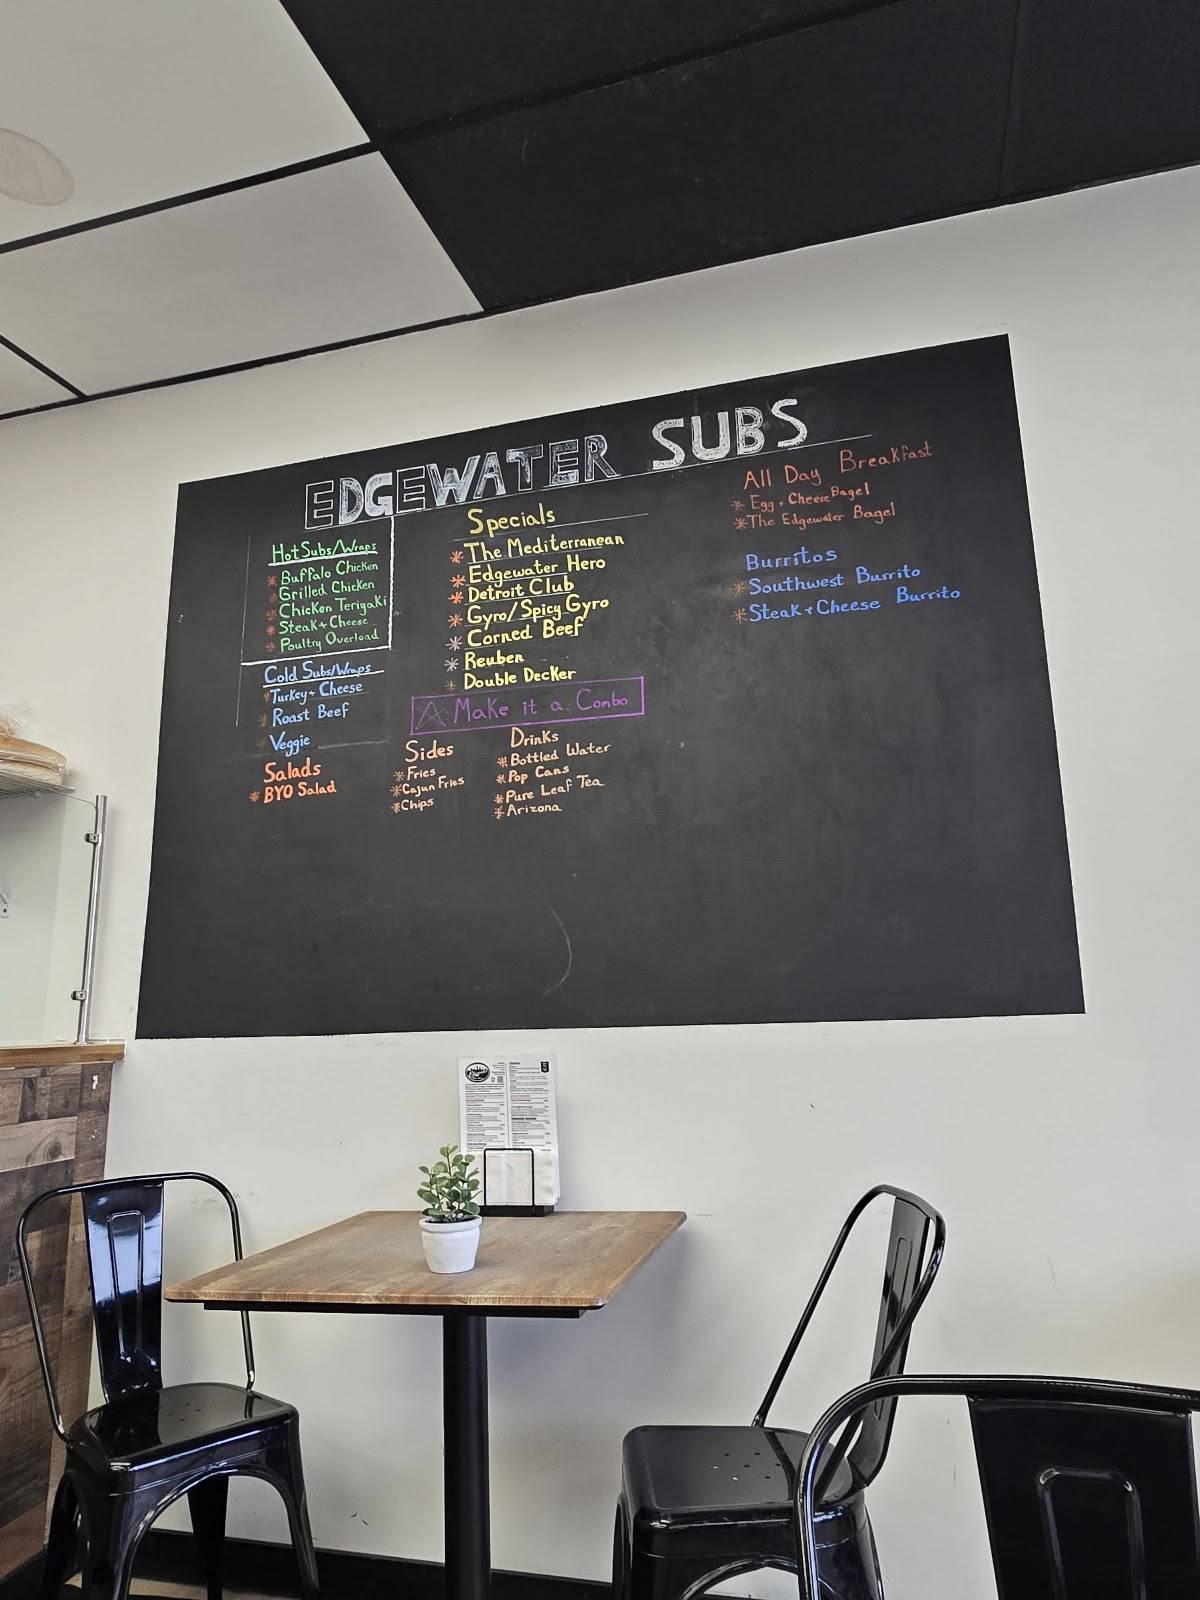 EDGEWATER SUBS
Hot Subs/Wraps
* Buffalo Chicken
* Grilled Chicken
* Chicken Teriyaki
* Steak + Cheese
* Poultry Overload
Cold Subs/Wraps
* Turkey + Cheese
* Roast Beef
* Veggie
Salads
* BYO Salad
Specials
* The Mediterranean
* Edgewater Hero
* Detroit Club
* Gyro/Spicy Gyro
* Corned Beef
* Reuben
* Double Decker
Make it a Combo
Sides
* Fries
* Cajun Fries
* Chips
Drinks
* Bottled Water
* Pop Cans
* Pure Leaf Tea
* Arizona
All Day Breakfast
* Egg + Cheese Bagel
* The Edgewater Bagel
Burritos
* Southwest Burrito
* Steak + Cheese Burrito